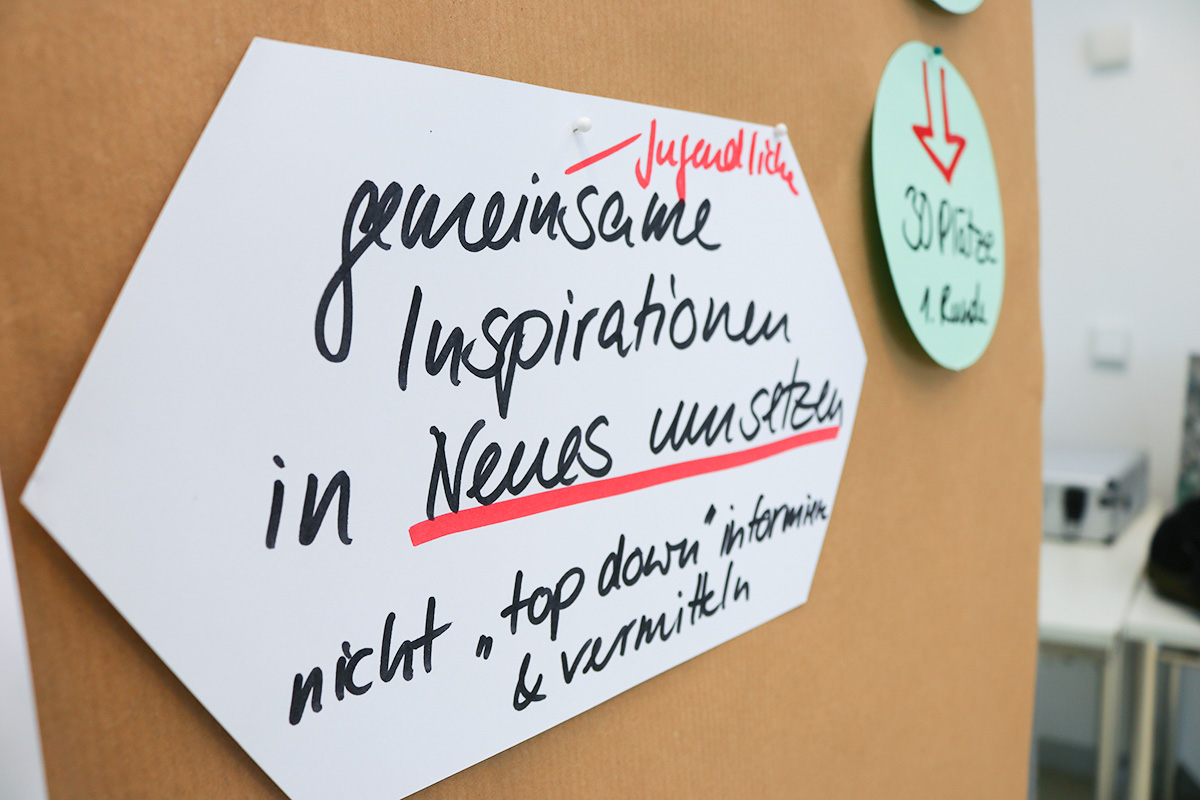 – Jugendliche
gemeinsame
Inspirationen
in Neues umsetzen
nicht „top down“ informieren
& vermitteln
30 Plätze
1. Runde